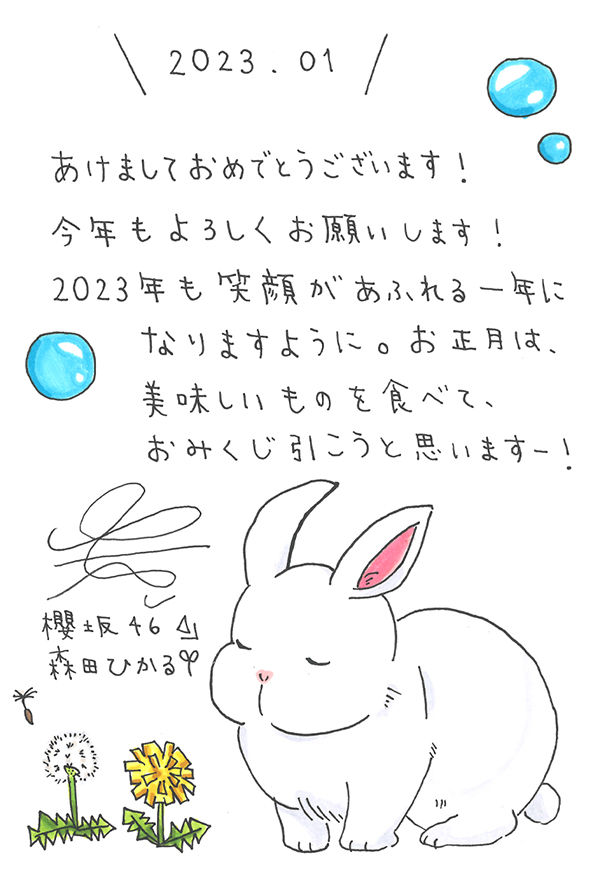 \ 2023.01 /
あけましておめでとうございます！
今年もよろしくお願いします！
2023年も笑顔があふれる一年に
なりますように。お正月は、
美味しいものを食べて、
おみくじ引こうと思いますー！
櫻坂46
森田ひかる